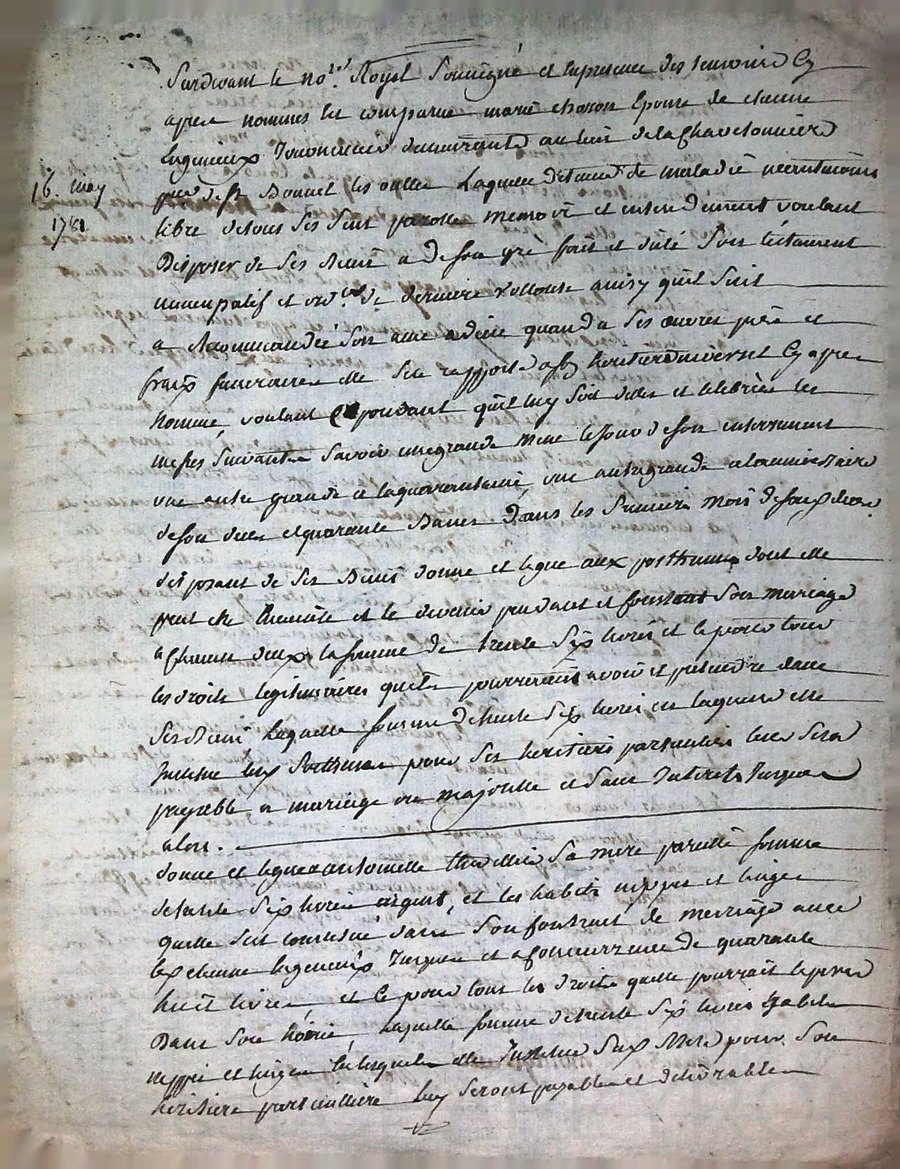 Pardevant le no.re Royal Soussigné et en presence des temoins Cy
apres nommes est comparue marie chosson Epouse de etienne
lagenieux demeurante au lieu de la Chavetonniere
16. may
1781
psse de st Bonnet les oulles Laquelle detenue de maladie neantmoins
libre de tous ses sens parolle memoire et entendement voulant
Disposer de ses Biens a de son gré fait et dicté Son testament
nuncupatif et de derniere vollonté ainsy qu'il suit
a Recommandée son ame a dieu quand a ses œuvres pies et
fraix funeraires elle s'en rapporte a son heritier universel Cy apres
nommé, voulant Cependant qu'il luy soit dites et celebrées les
messes suivantes Savoir une grande messe le jour de son enterrement
une autre grande a la quarantaine, une autre grande a l'anniversaire
de son deces et quarante Basses Dans les premiers mois de son deces
disposant de ses Biens donne et legue aux posthumes dont elle
peut etre Enceinte et le devenir pendant et constant son mariage
a chacun d'eux la somme de trente six livres et ce pour tous
les droits legitimaires qu'ils pourroient avoir et pretendre dans
ses Biens laquelle somme de trente six livres en laquelle elle
Institue les Posthumes pour ses heritiers particuliers leur sera
payable a mariage ou majorité et sans Interets Jusques
alors.
donne et legue a antoinette sa mere pareille somme
de trente six livres argent, et les habits nippes et linges
quelle sest constitué dans son Contract de mariage avec
led etienne lagenieux Jusques et a Concurrence de quarante
huit livres, et ce pour tous les droits quelle pourroit esperer
Dans son hoirie, laquelle somme de trente six livres habits
nippes et linges lesquels elle Institue sad mere pour son
héritiere particulliere luy seront payables et delivrables